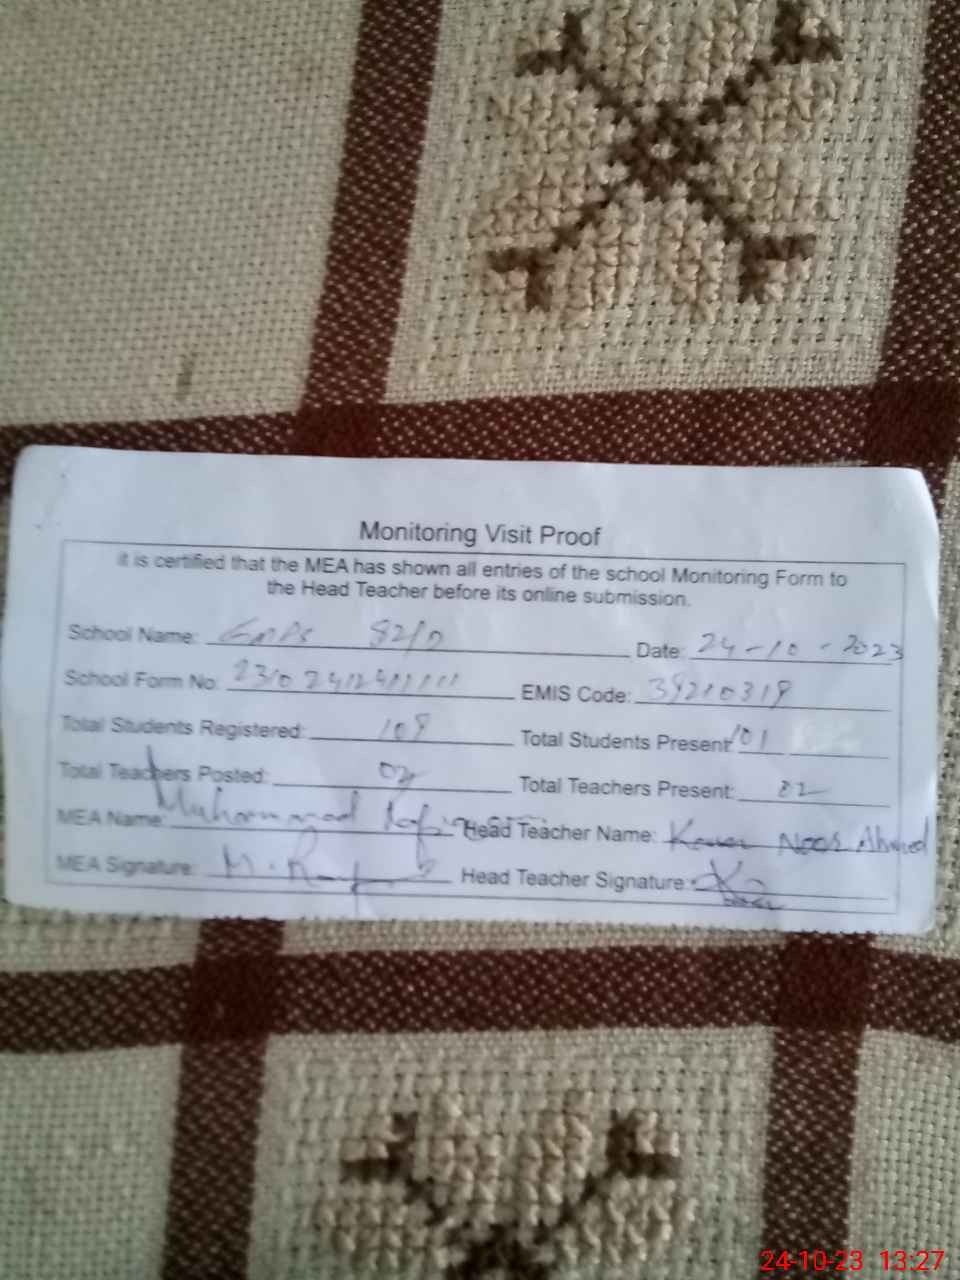 Monitoring Visit Proof
it is certified that the MEA has shown all entries of the school Monitoring Form to
the Head Teacher before its online submission.
School Name: 82/D Date: 24-10-2023
School Form No: EMIS Code: 39210319
Total Students Registered: 109 Total Students Present: 101
Total Teachers Posted: 02 Total Teachers Present: 02
MEA Name: Muhammad Head Teacher Name: Noor Ahmed
MEA Signature: Head Teacher Signature:
24-10-23 13:27